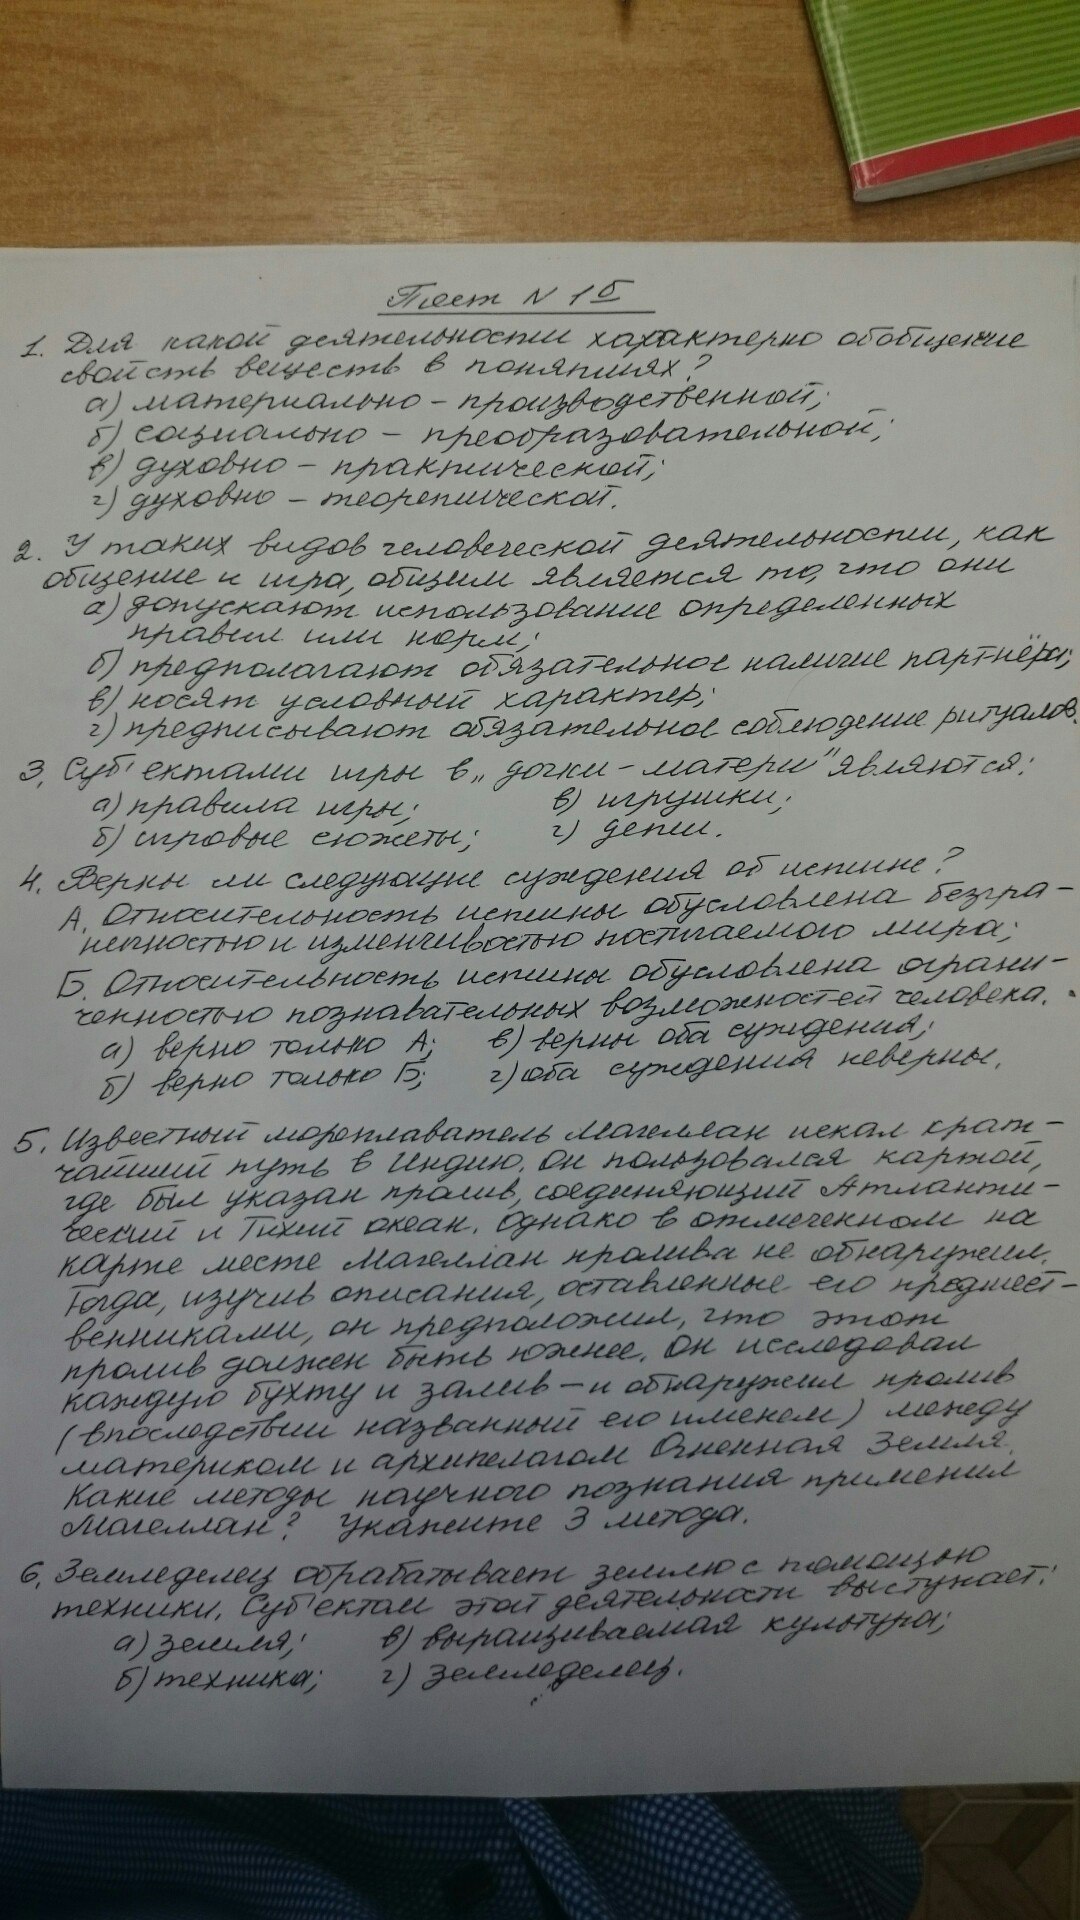 Тест N 1б
1. Для какой деятельности характерно обобщение
свойств веществ в понятиях?
а) материально – производственной;
б) социально – преобразовательной;
в) духовно – практической;
г) духовно – теоретической.
2. У таких видов человеческой деятельности, как
общение и игра, общим является то, что они
а) допускают использование определенных
правил или норм;
б) предполагают обязательное наличие партнёра;
в) носят условный характер;
г) предписывают обязательное соблюдение ритуалов.
3. Суб'ектами игры в „дочки – матери" являются:
а) правила игры; в) игрушки;
б) игровые сюжеты; г) дети.
4. Верны ли следующие суждения об истине?
А. Относительность истины обусловлена безгра-
ничностью и изменчивостью постигаемого мира;
Б. Относительность истины обусловлена ограни-
ченностью познавательных возможностей человека.
а) верно только А; в) верны оба суждения;
б) верно только Б; г) оба суждения неверны.
5. Известный мореплаватель Магеллан искал крат-
чайший путь в Индию. Он пользовался картой,
где был указан пролив, соединяющий Атланти-
ческий и Тихий океан. Однако в отмеченном на
карте месте Магеллан пролива не обнаружил.
Тогда, изучив описания, оставленные его предшест-
венниками, он предположил, что этот
пролив должен быть южнее. Он исследовал
каждую бухту и залив – и обнаружил пролив
(впоследствии названный его именем) между
материком и архипелагом Огненная Земля.
Какие методы научного познания применил
Магеллан? Укажите 3 метода.
6. Земледелец обрабатывает землю с помощью
техники. Суб'ектом этой деятельности выступает:
а) земля; в) выращиваемая культура;
б) техника; г) земледелец.